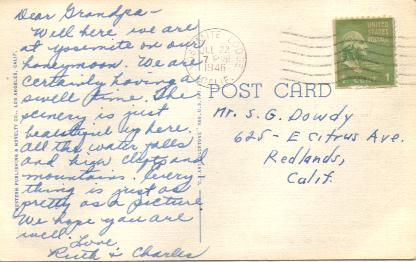 Dear Grandpa-
Well here we are
at yosemite on our
honeymoon. We are
certainly having a
swell time. The
scenery is just
beautiful up here.
all the water falls
and high clifts and
mountains. Every
thing is just as
pretty as a picture
We hope you are
well. Love,
Ruth & Charles
JUL 22
7 PM
1946
CALIF.
UNITED
STATES
POSTAGE
POST CARD
Mr. S. G. Dowdy
625 - E Citrus Ave.
Redlands,
Calif.
WESTERN PUBLISHING & NOVELTY CO., LOS ANGELES, CALIF.